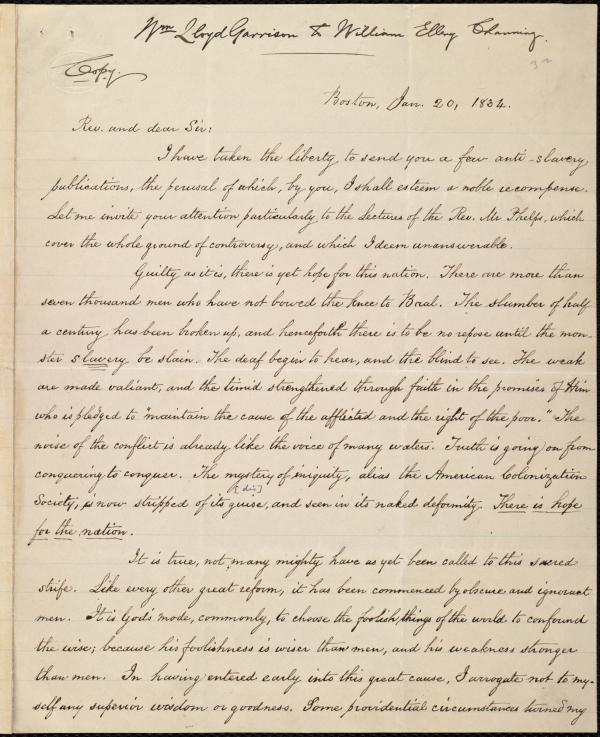 Wm Lloyd Garrison to William Ellery Channing.
Copy.
Boston, Jan. 20, 1834.
Rev. and dear Sir:
I have taken the liberty to send you a few anti-slavery
publications, the perusal of which, by you, I shall esteem a noble recompense.
Let me invite your attention particularly to the Lectures of the Rev. Mr Phelps, which
cover the whole ground of controversy, and which I deem unanswerable.
Guilty as it is, there is yet hope for this nation. There are more than
seven thousand men who have not bowed the knee to Baal. The slumber of half
a century has been broken up, and henceforth there is to be no repose until the mon-
ster slavery be slain. The deaf begin to hear, and the blind to see. The weak
are made valiant, and the timid strengthened through faith in the promises of Him
who is pledged to "maintain the cause of the afflicted and the right of the poor." The
noise of the conflict is already like the voice of many waters. Truth is going on from
conquering to conquer. The mystery of iniquity, alias the American Colonization
[dis]
Society, is now stripped of its guise, and seen in its naked deformity. There is hope
for the nation.
It is true, not many mighty have as yet been called to this sacred
strife. Like every other great reform, it has been commenced by obscure and ignorant
men. It is Gods' mode, commonly, to choose the foolish things of the world to confound
the wise; because his foolishness is wiser than men, and his weakness stronger
than men. In having entered early into this great cause, I arrogate not to my-
self any superior wisdom or goodness. Some providential circumstances turned my